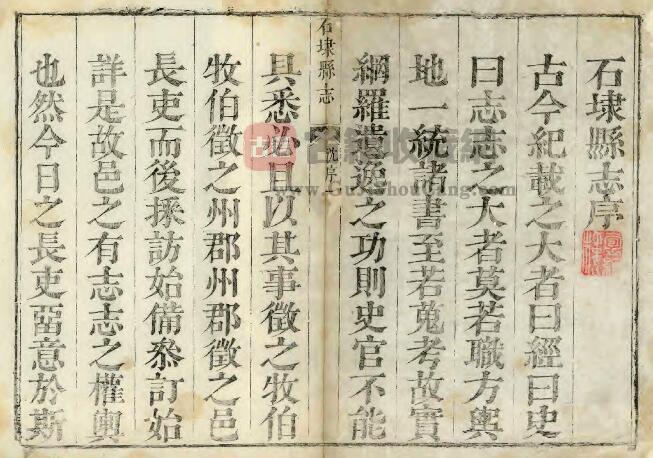 石埭縣志序
古今紀載之大者曰經曰史
曰志志之大者莫若職方輿
地一統諸書至若蒐考故實
網羅遺逸之功則史官不能
石埭縣志
沈序
具悉必且以其事徵之牧伯
牧伯徵之州郡州郡徵之邑
長吏而後採訪始備叅訂始
詳是故邑之有志志之權輿
也然今日之長吏畱意於斯